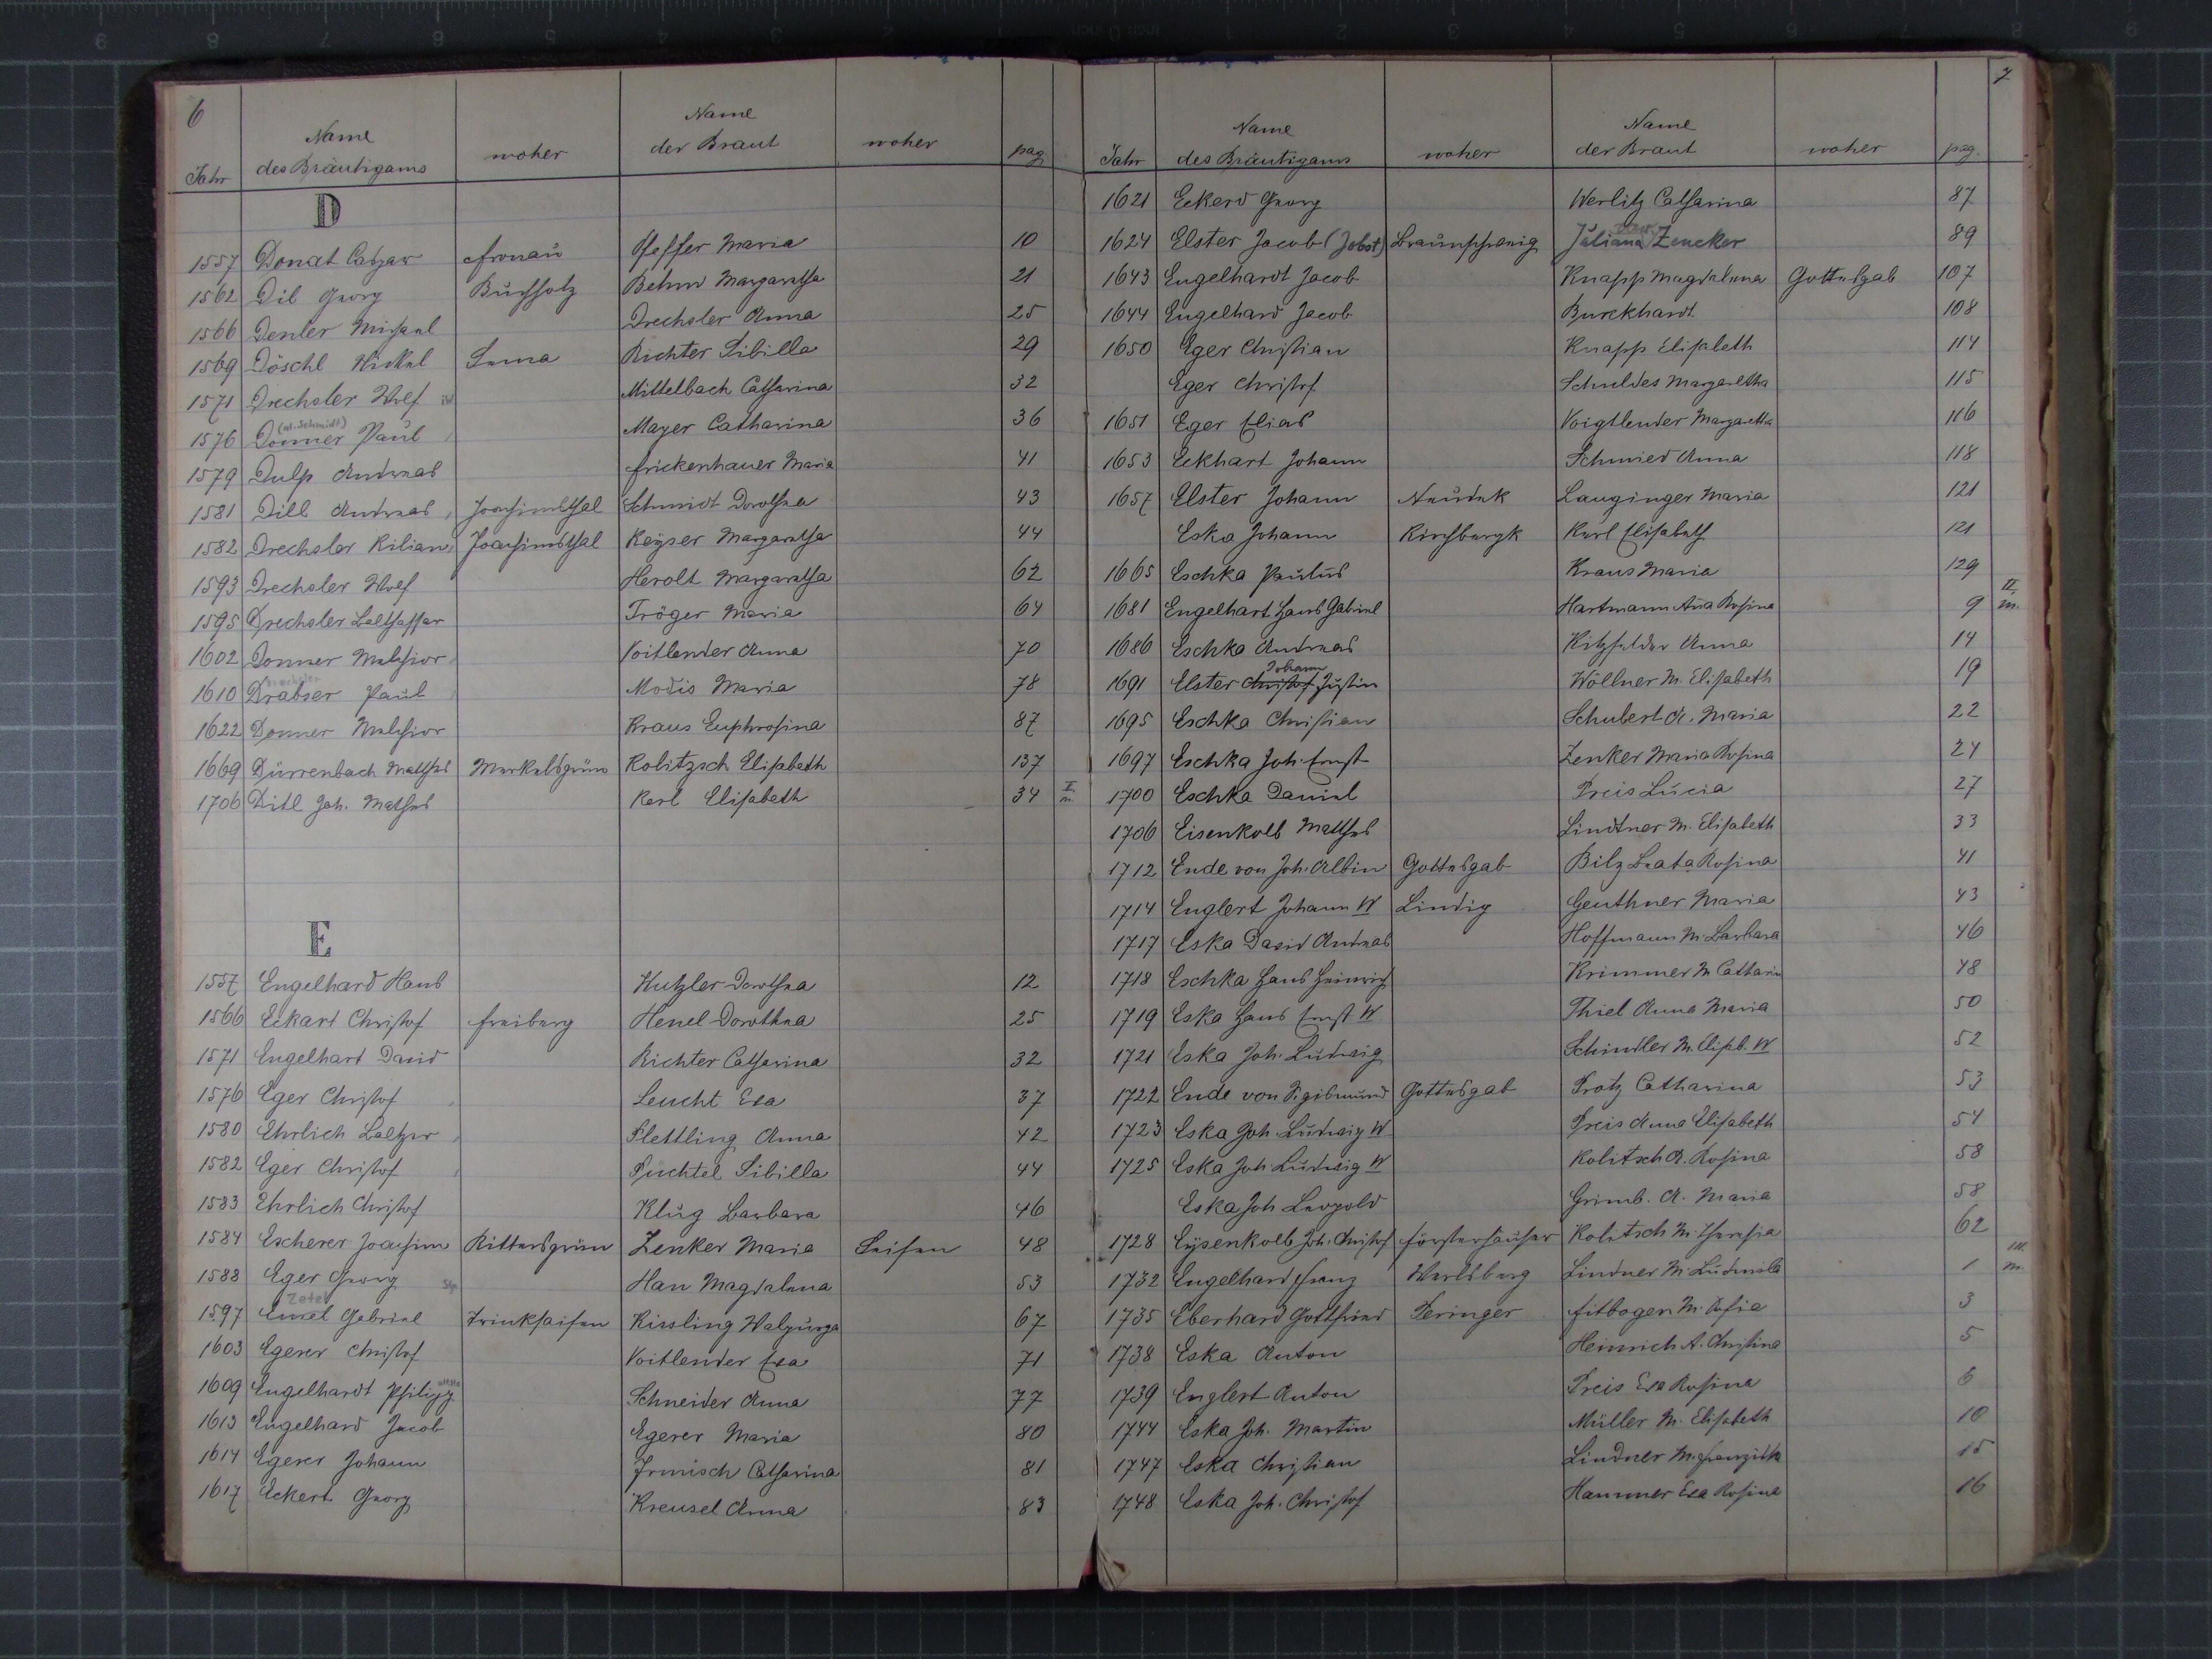 6
Jahr Name des Bräutigams woher Name der Braut woher pag.
D
1557 Donat Caspar Fronau Pfeffer Maria 10
1562 Dil Georg Buchholz Behm Margaretha 21
1566 Denler Michael Drechsler Anna 25
1569 Döschl Nickel Richter Sibilla 29
1571 Drechsler Wolf Mittelbach Catharina 32
1576 Donner (al. Schmidt) Paul Mayer Catharina 36
1579 Dulp Andreas Frickenhauer Maria 41
1581 Dill Andreas Joachimsthal Schmidt Dorothea 43
1582 Drechsler Kilian Joachimsthal Keyser Margaretha 44
1593 Drechsler Wolf Herolt Margaretha 62
1595 Drechsler Balthassar Tröger Maria 64
1602 Donner Melchior Voitlender Anna 70
1610 Drabser Paul Modis Maria 78
1622 Donner Melchior Kraus Euphrosina 87
1669 Dürrenbach Mathes Merkelsgrün Kolitzsch Elisabeth 137
1706 Ditl Joh. Mathes Kerl Elisabeth 34 II. m.
E
1557 Engelhard Hans Kutzler Dorothea 12
1566 Eckart Christof Freiberg Henel Dorothea 25
1571 Engelhart David Richter Catharina 32
1576 Eger Christof Leucht Eva 37
1580 Ehrlich Baltzer Plettling Anna 42
1582 Eger Christof Puchtel Sibilla 44
1583 Ehrlich Christof Klug Barbara 46
1584 Escherer Joachim Rittersgrün Zenker Maria Seifen 48
1588 Eger Georg Han Magdalena 53
1597 Gabriel Trinkseifen Kissling Walpurga 67
1603 Egerer Christof Voitlender Eva 71
1609 Engelhardt Philipp Schneider Anna 77
1613 Engelhard Jacob Egerer Maria 80
1614 Egerer Johann Irmisch Catharina 81
1617 Eckert Georg Kreusel Anna 83
7
Jahr Name des Bräutigams woher Name der Braut woher pag.
1621 Eckerd Georg Werlitz Catharina 87
1624 Elster Jacob (Jobst) Braunschweig Juliana Zencker 89
1643 Engelhardt Jacob Knapp Magdalena Gottesgab 107
1644 Engelhard Jacob Burckhardt 108
1650 Eger Christian Knapp Elisabeth 114
Eger Christof Schuldes Margaretha 115
1651 Eger Elias Voigtlender Margaretha 116
1653 Eckhart Johann Schmied Anna 118
1657 Elster Johann Neudek Langinger Maria 121
Eska Johann Kirchbergk Karl Elisabeth 121
1665 Eschka Paulus Kraus Maria 129
1681 Engelhart Hans Gabriel Hartmann Aña Rosina 9 II. m.
1686 Eschka Andreas Anna 14
1691 Elster Christof Johann Justin Wöllner M. Elisabeth 19
1695 Eschka Christian Schubert A. Maria 22
1697 Eschka Joh. Ernst Zenker Maria Rosina 24
1700 Eschka Daniel Preis Lucia 27
1706 Eisenkolb Mathes Lindtner M. Elisabeth 33
1712 Ende von Joh. Albin Gottesgab Bilz Beata Rosina 41
1714 Englert Johann W Lindig Geuthner Maria 43
1717 Eska David Andreas Hoffmann M. Barbara 46
1718 Eschka Hans Heinrich Krimmer M Catharin 48
1719 Eska Hans Ernst W Thiel Anna Maria 50
1721 Eska Joh. Ludwig Schindler M. Elisab. W 52
1722 Ende von Sigismund Gottesgab Protz Catharina 53
1723 Eska Joh. Ludwig W Preis Anna Elisabeth 54
1725 Eska Joh. Ludwig W Kolitsch A. Rosina 58
Eska Joh Leopold Grimb. A. Maria 58
1728 Eysenkolb Joh. Christof Försterhäuser Kolitsch M. Theresia 62
1732 Engelhard Franz Karlsberg Lindner M. Ludmila 1 III. m.
1735 Eberhard Gottfried Peringer Fitbogen M. Sofia 3
1738 Eska Anton Heinrich A. Christina 5
1739 Englert Anton Preis Eva Rosina 6
1744 Eska Joh. Martin Müller M. Elisabeth 10
1747 Eska Christian Lindner M. Franziska 15
1748 Eska Joh. Christof Hammer Eva Rosina 16